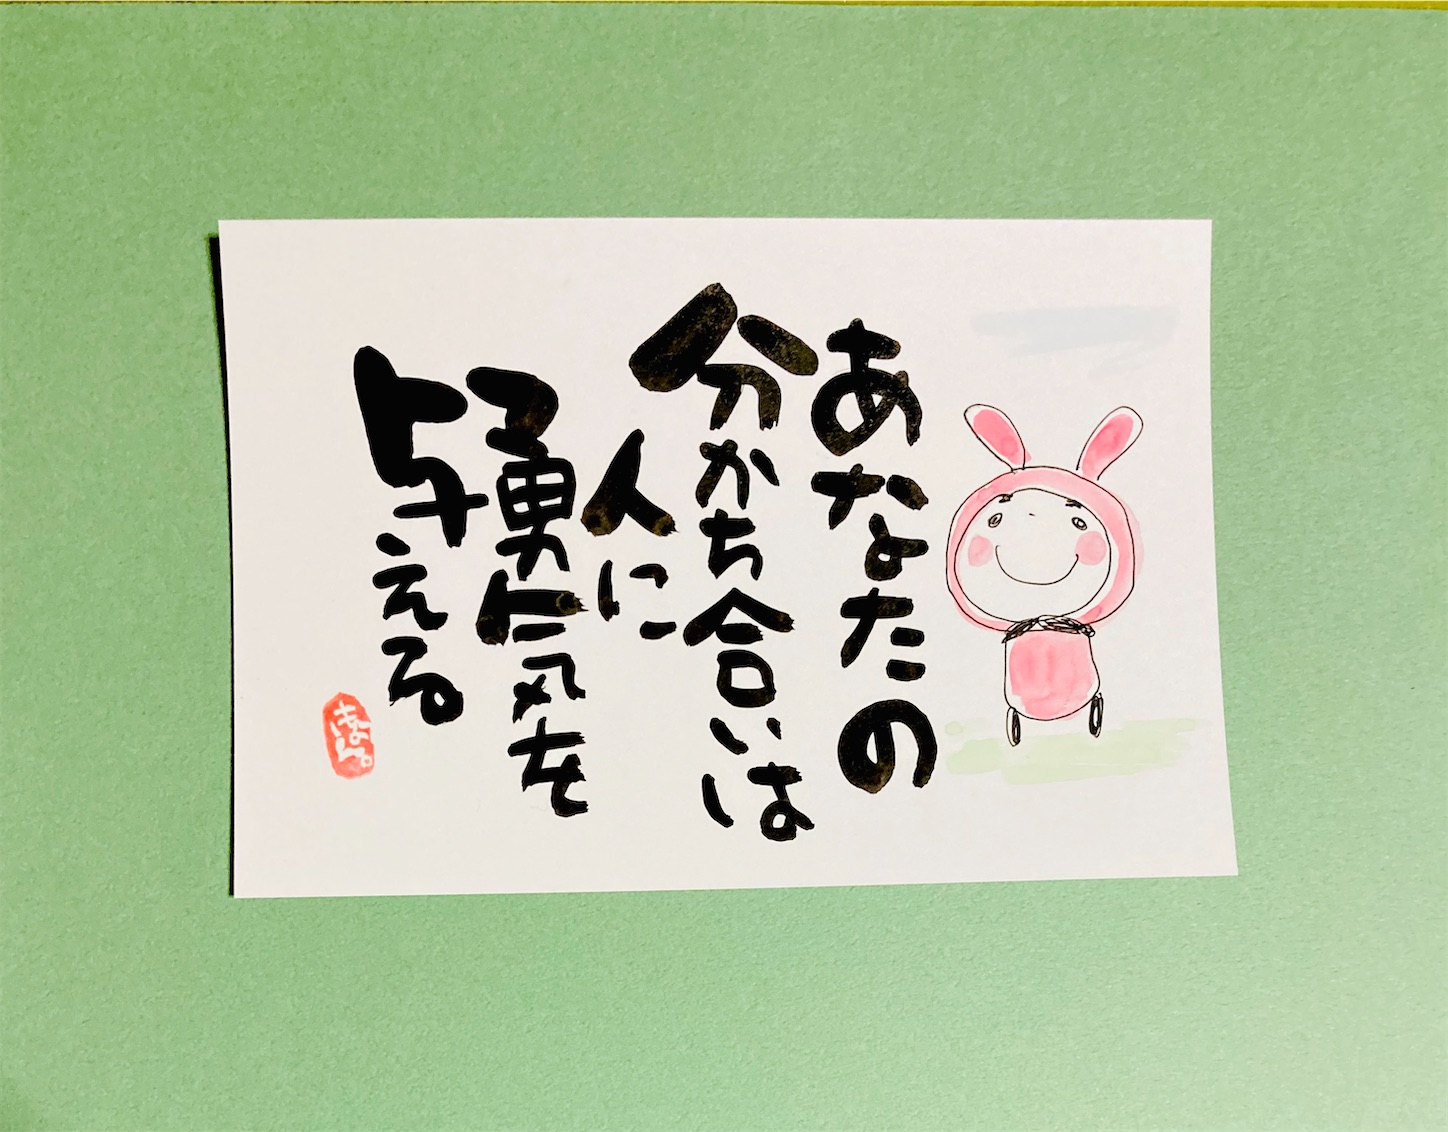 あなたの
分かち合いは
人に
勇気を
与える